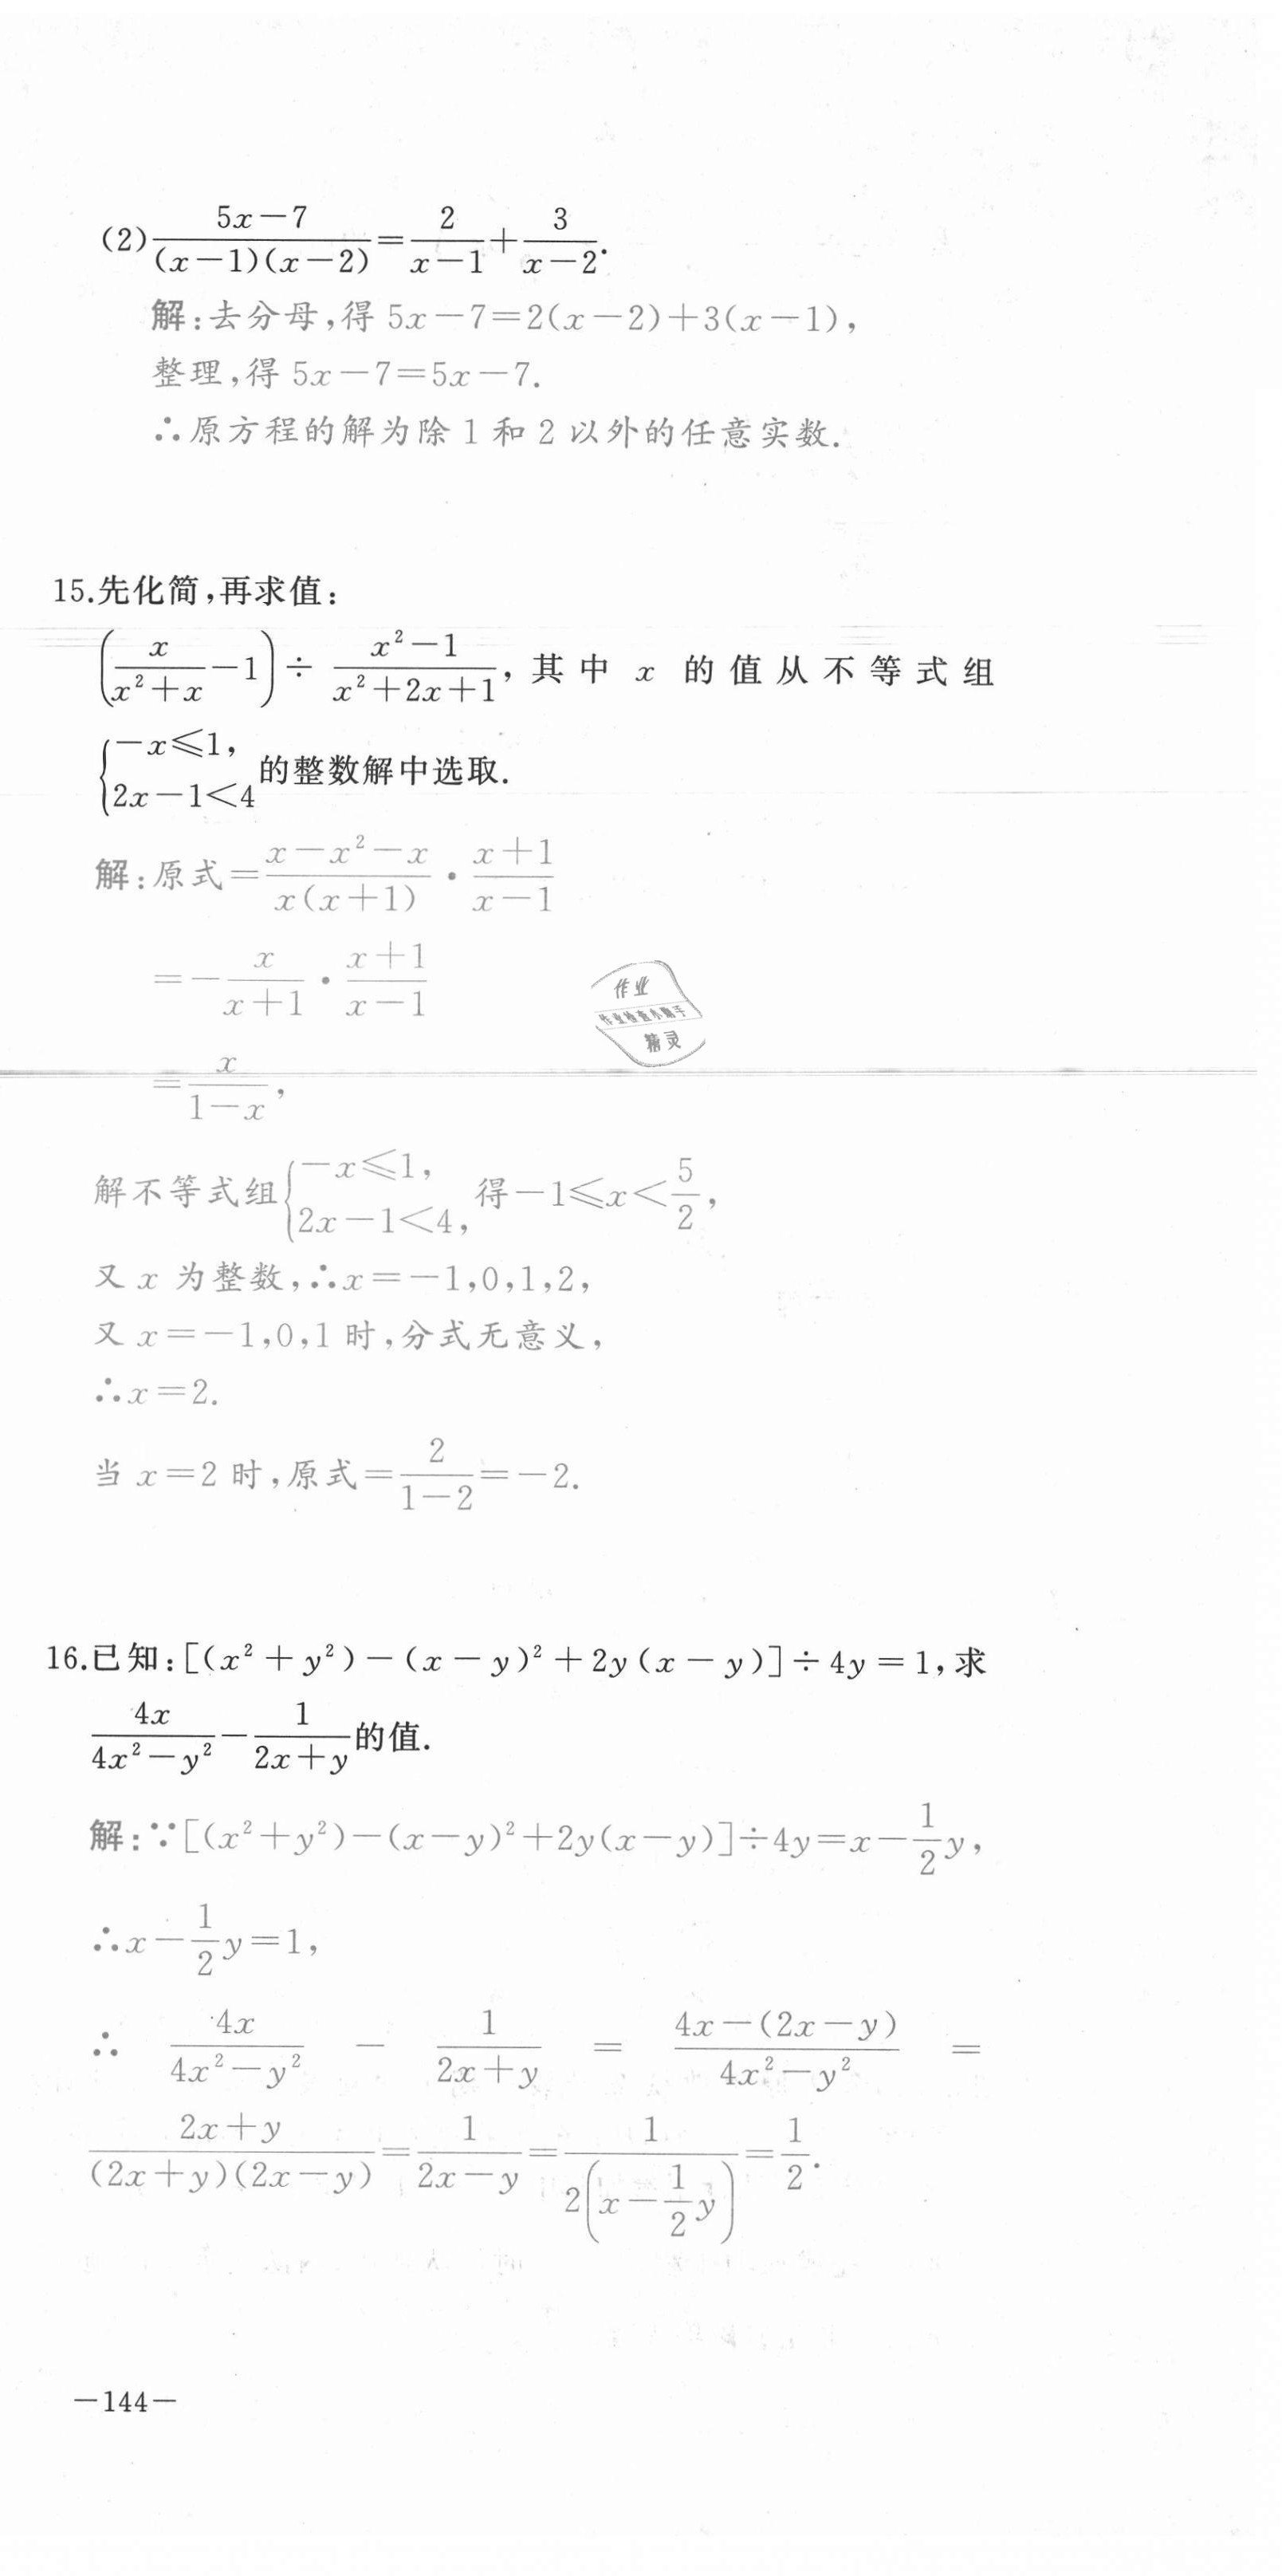 (2)\frac{5x-7}{(x-1)(x-2)}=\frac{2}{x-1}+\frac{3}{x-2}.
解:去分母,得 5x-7=2(x-2)+3(x-1),
整理,得 5x-7=5x-7.
∴原方程的解为除 1 和 2 以外的任意实数.
15.先化简,再求值:
\left(\frac{x}{x^2+x}-1\right)÷\frac{x^2-1}{x^2+2x+1},其中 x 的值从不等式组
\begin{cases}-x≤1,\\2x-1<4\end{cases}的整数解中选取.
解:原式=\frac{x-x^2-x}{x(x+1)}·\frac{x+1}{x-1}
=-\frac{x}{x+1}·\frac{x+1}{x-1}
=\frac{x}{1-x},
解不等式组\begin{cases}-x≤1,\\2x-1<4,\end{cases}得-1≤x<\frac{5}{2},
又 x 为整数,∴x=-1,0,1,2,
又 x=-1,0,1 时,分式无意义,
∴x=2.
当 x=2 时,原式=\frac{2}{1-2}=-2.
16.已知:[(x²+y²)-(x-y)²+2y(x-y)]÷4y=1,求
\frac{4x}{4x^2-y^2}-\frac{1}{2x+y}的值.
解:∵[(x²+y²)-(x-y)²+2y(x-y)]÷4y=x-\frac{1}{2}y,
∴x-\frac{1}{2}y=1,
∴ \frac{4x}{4x^2-y^2} - \frac{1}{2x+y} = \frac{4x-(2x-y)}{4x^2-y^2} =
\frac{2x+y}{(2x+y)(2x-y)}=\frac{1}{2x-y}=\frac{1}{2\left(x-\frac{1}{2}y\right)}=\frac{1}{2}.
-144-
作业
作业检查小助手
精灵